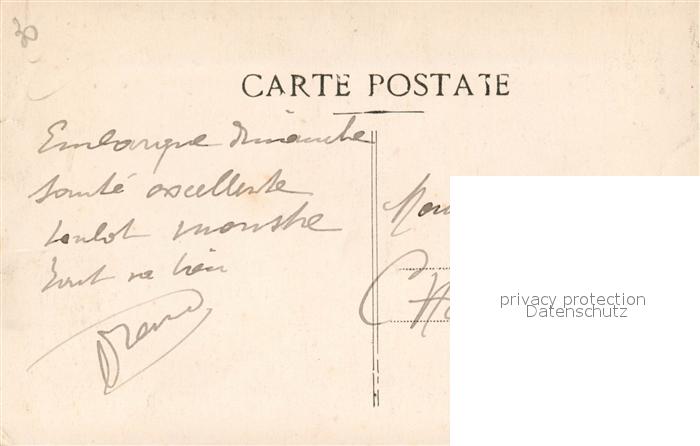 30
CARTE POSTALE
Embarque dimanche
santé excellente
boulot monstre
tout va bien
privacy protection
Datenschutz